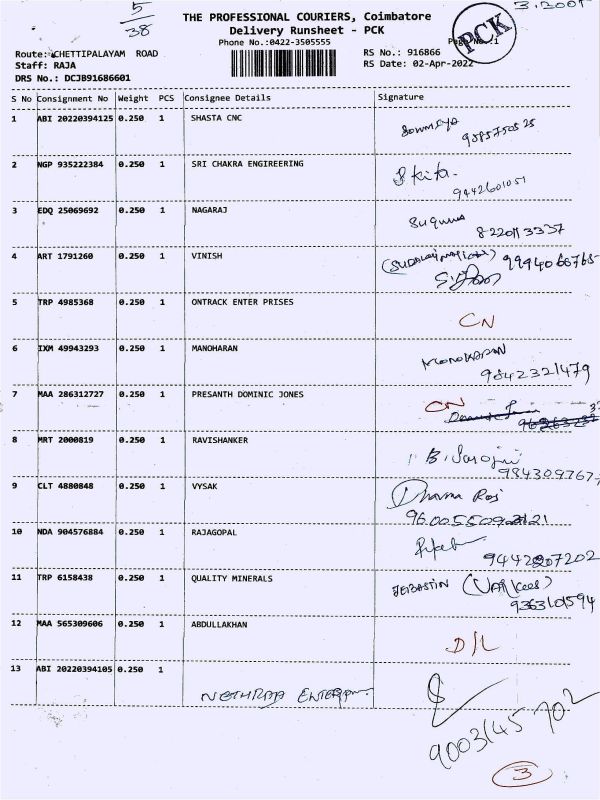 5
38
3.2001
THE PROFESSIONAL COURIERS, Coimbatore
Delivery Runsheet - PCK
Phone No.:0422-3505555
PCK
Route: CHETTIPALAYAM ROAD
Staff: RAJA
DRS No.: DCJB91686601
RS No.: 916866
RS Date: 02-Apr-2022
S No Consignment No Weight PCS Consignee Details Signature
1 ABI 20220394125 0.250 1 SHASTA CNC Sowmiya
9585750525
2 NGP 935222384 0.250 1 SRI CHAKRA ENGIREERING
9442601051
3 EDQ 25069692 0.250 1 NAGARAJ Suguna
8220113337
4 ART 1791260 0.250 1 VINISH 9994066765
5 TRP 4985368 0.250 1 ONTRACK ENTER PRISES CN
6 IXM 49943293 0.250 1 MANOHARAN MANOHARAN
9842321479
7 MAA 286312727 0.250 1 PRESANTH DOMINIC JONES CN
8 MRT 2000819 0.250 1 RAVISHANKER B. Sarojini
984309767
9 CLT 4880848 0.250 1 VYSAK Dharma Raj
10 NDA 904576884 0.250 1 RAJAGOPAL
9442207202
11 TRP 6158438 0.250 1 QUALITY MINERALS JEBASTIN
9363101594
12 MAA 565309606 0.250 1 ABDULLAKHAN D/L
13 ABI 20220394105 0.250 1
NETHRAA
9003145702
3